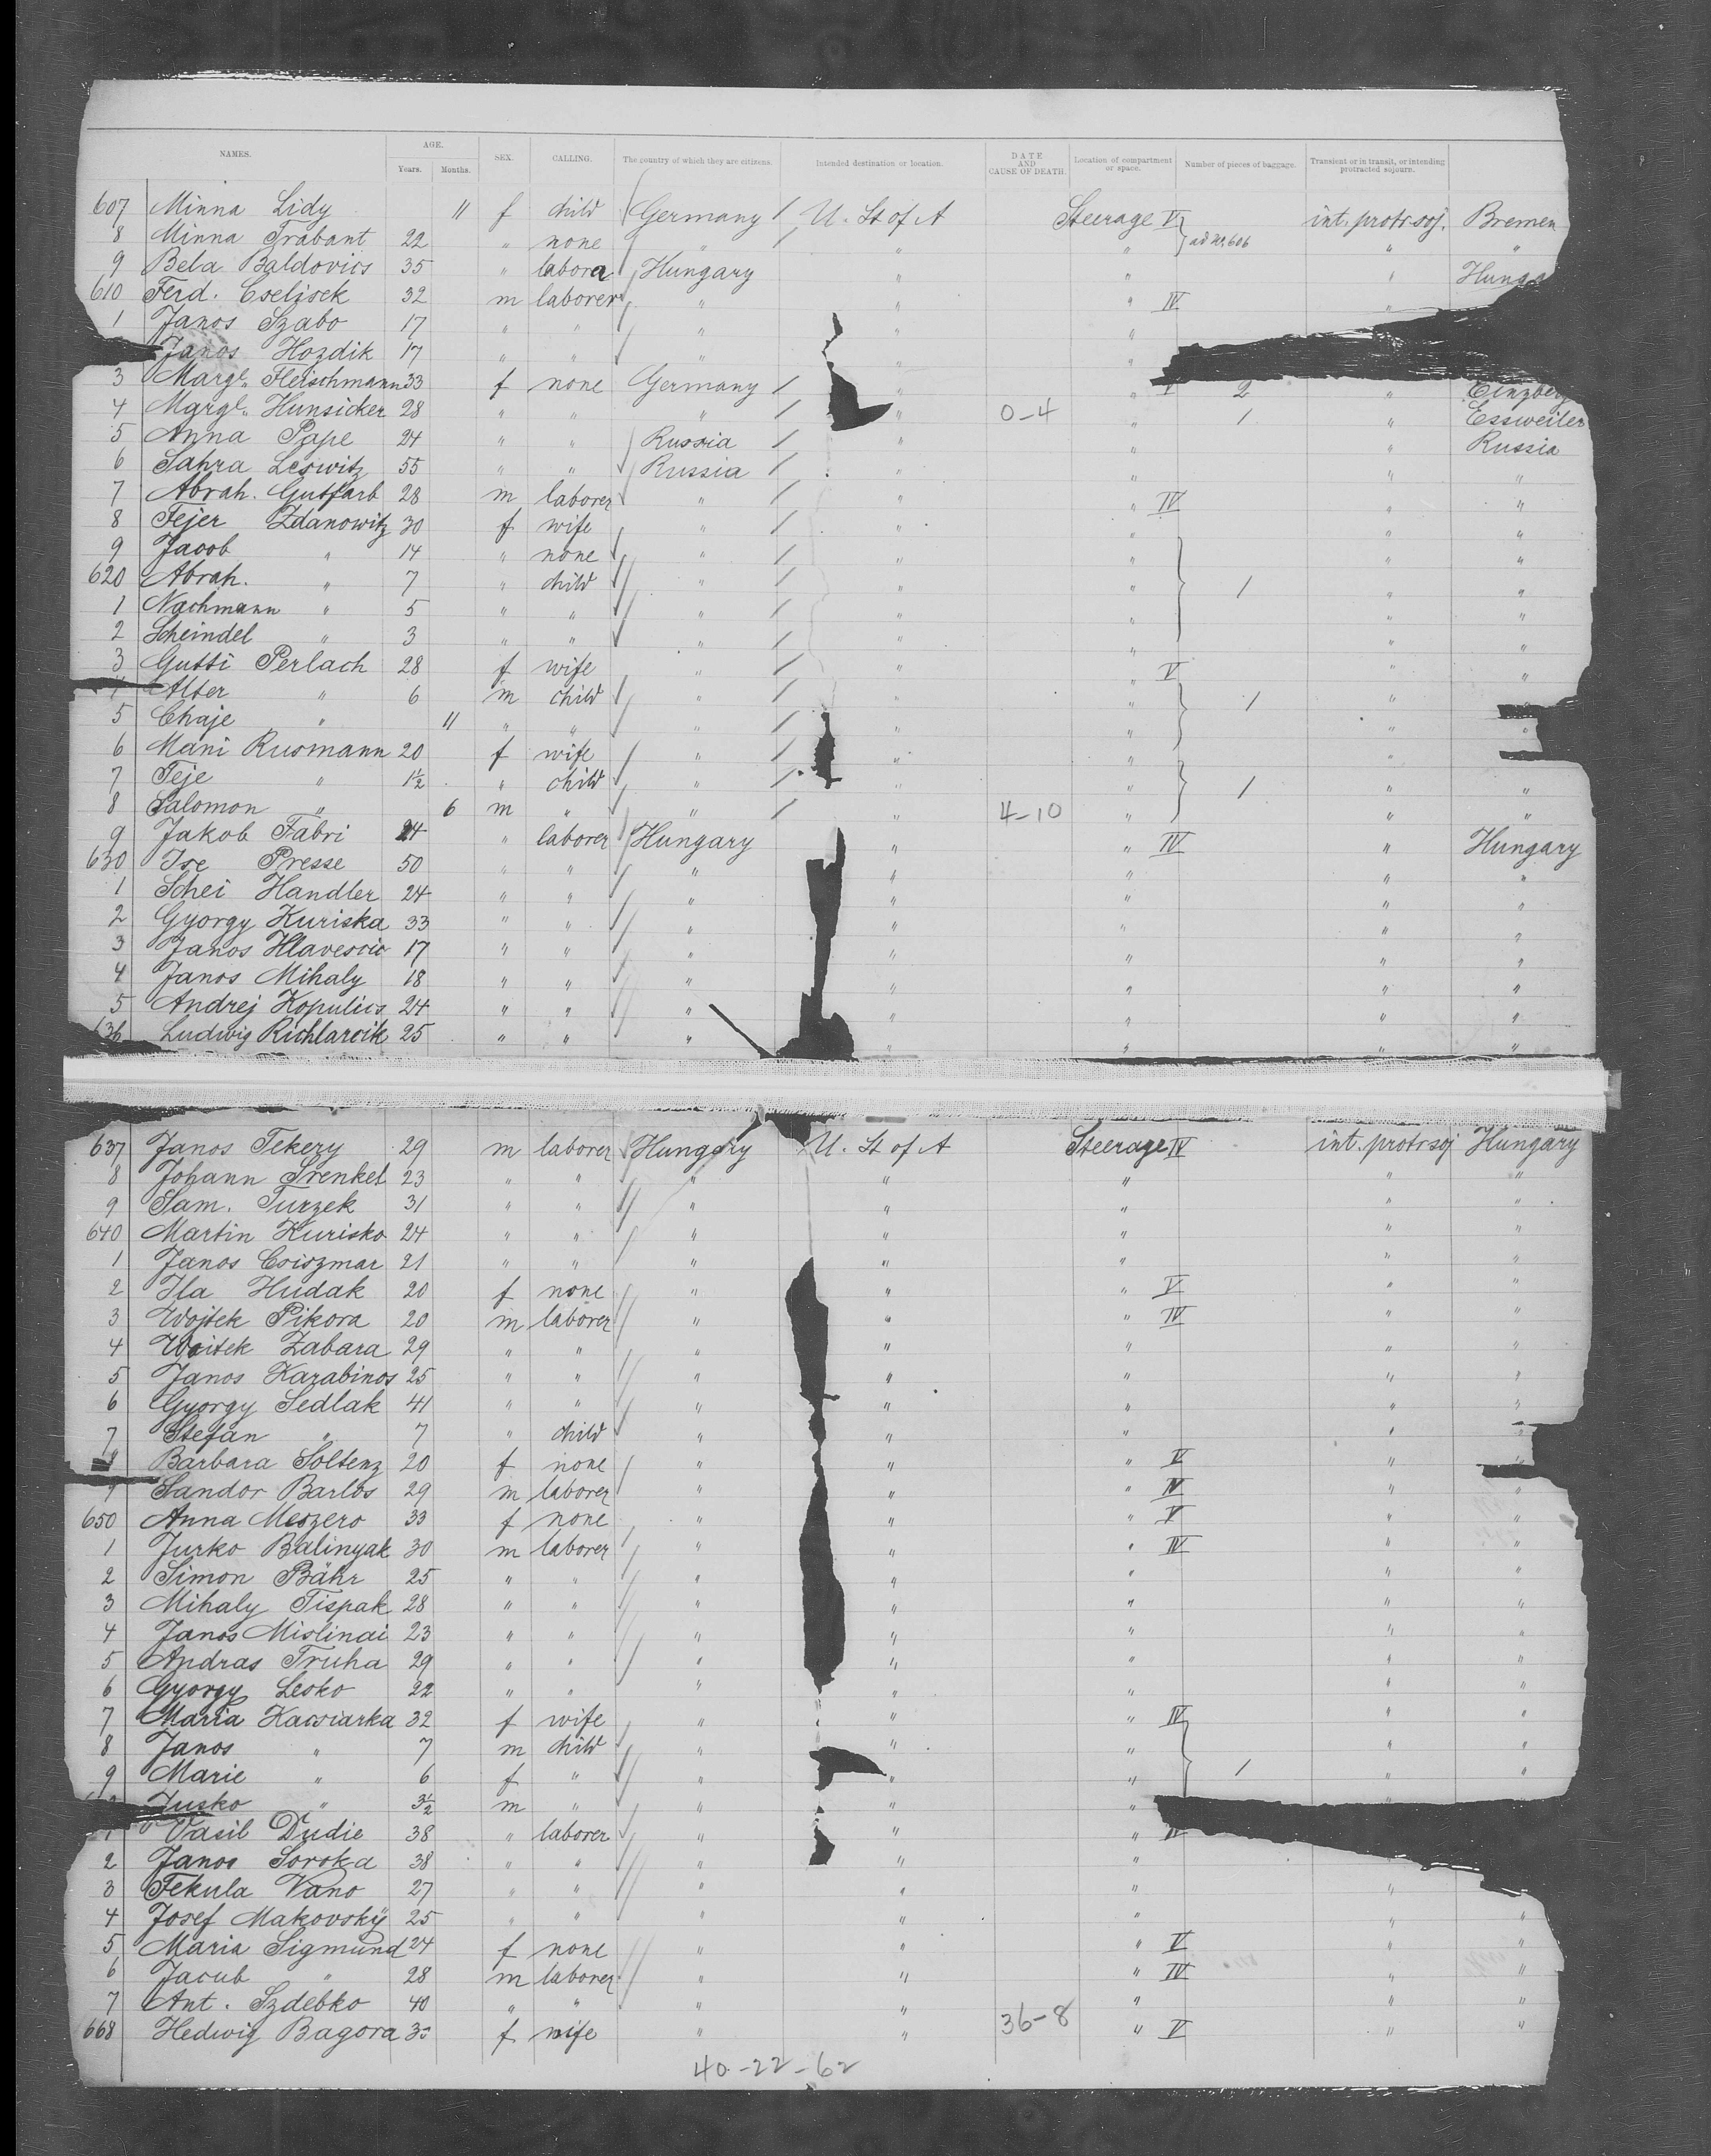 NAMES. AGE. Years. Months. SEX. CALLING. The country of which they are citizens. Intended destination or location. DATE AND CAUSE OF DEATH. Location of compartment or space. Number of pieces of baggage. Transient or in transit, or intending protracted sojourn.
607 Minna Lidy 11 f child Germany / U. St of A Steerage V int. protr. soj. Bremen
8 Minna Trabant 22 " none " / " " } ad 606 " "
9 Bela Baldovics 35 " labora Hungary " " "
610 Ferd. Cselisek 32 m laborer " " " IV "
1 Janos Szabo 17 " " " " "
Janos Hozdik 17 " " " " "
3 Margt. Fleischmann 33 f none Germany / " " V 2 "
4 Margt. Hunsicker 28 " " " / " 0-4 " 1 " Essweiler
5 Anna Pape 24 " " Russia / " " " Russia
6 Sahra Leswitz 55 " " Russia / " " " "
7 Abrah. Gutfarb 28 m laborer " / " " IV " "
8 Fejer Zdanowitz 30 f wife " / " " " "
9 Jacob " 14 " none " / " " " "
620 Abrah. " 7 " child " / " " 1 " "
1 Nachmann " 5 " " " / " " " "
2 Scheindel " 3 " " " / " " " "
3 Gutti Perlach 28 f wife " / " " V " "
4 Alter " 6 m child " / " " 1 " "
5 Chaje " 11 " " " / " " "
6 Mani Rusmann 20 f wife " / " " "
7 Feje " 1½ " child " / " " 1 " "
8 Salomon " 6 m " " / " 4-10 " " "
9 Jakob Fabri 24 " laborer Hungary " " IV " Hungary
630 Ise Presse 50 " " " " " " "
1 Schei Handler 24 " " " " " " "
2 Gyorgy Kuriska 33 " " " " " " "
3 Janos Hlavescic 17 " " " " " " "
4 Janos Mihaly 18 " " " " " "
5 Andrej Kopulics 24 " " " " " " "
636 Ludwig Richlarcik 25 " " " " " " "
637 Janos Tekery 29 m laborer Hungary U. St of A Steerage IV int. protr soj Hungary
8 Johann Srenkel 23 " " " " " " "
9 Sam. Turzek 31 " " " " " " "
640 Martin Kurisko 24 " " " " " " "
1 Janos Csiszmar 21 " " " " " " "
2 Ila Hudak 20 f none " " " V " "
3 Wojtek Pikora 20 m laborer " " " IV " "
4 Woitek Zabara 29 " " " " " " "
5 Janos Karabinos 25 " " " " " " "
6 Gyorgy Sedlak 41 " " " " " " "
7 Stefan " 7 " child " " " " "
8 Barbara Soltenz 20 f none " " " V " "
9 Sandor Barlos 29 m laborer " " " IV " "
650 Anna Meszero 33 f none " " " V " "
1 Jurko Balinyak 30 m laborer " " " IV " "
2 Simon Bähr 25 " " " " " " "
3 Mihaly Tispak 28 " " " " " " "
4 Janos Mislinai 23 " " " " " " "
5 Andras Truha 29 " " " " " " "
6 Gyorgy Lesko 22 " " " " " " "
7 Maria Kacsiarka 32 f wife " " " IV " "
8 Janos " 7 m child " " " " "
9 Marie " 6 f " " " " 1 " "
Jusko " 3½ m " " " " "
1 Vasil Dudic 38 " laborer " " "
2 Janos Soroka 38 " " " " "
3 Fekula Vano 27 " " " " " "
4 Josef Makovsky 25 " " " " " " "
5 Maria Sigmund 24 f none " " " V " "
6 Jacub " 28 m laborer " " " IV " "
7 Ant. Szdebko 40 " " " " " " "
668 Hedwig Bagora f wife " " 36-8 " V " "
40-22-62